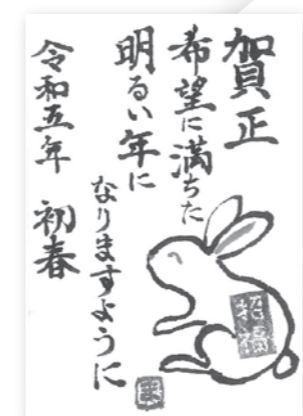 賀正
希望に満ちた
明るい年に
なりますように
令和五年 初春
招福